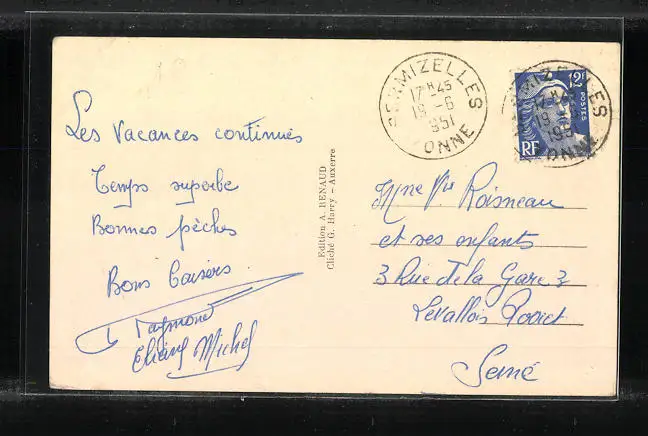 Les Vacances continues
Temps superbe
Bonnes pêches
Bons baisers
Raymond
Michel
Edition A. RENAUD
Cliché G. Harry - Auxerre
SERMIZELLES
17H45
19-6
1951
YONNE
12F
POSTES
RF
SERMIZELLES
17H45
19-6
1951
YONNE
Mme Vve Roisneau
et ses enfants
3 Rue de la Gare 3
Levallois Perret
Seine